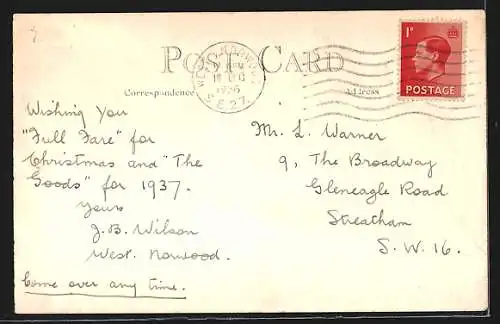 POST CARD
Correspondence
Address
WEST NORWOOD
18 DEC
1936
S.E.27.
1D
POSTAGE
Wishing You
"Full Fare" for
Christmas and "The
Goods" for 1937.
Yours
J.B. Wilson
West. Norwood.
Come over any time.
Mr. L. Warner
9, The Broadway
Gleneagle Road
Streatham
S.W.16.